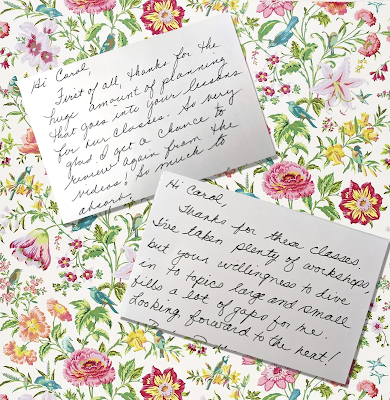 Hi Carol,
First of all, thanks for the
huge amount of planning
that goes into your lessons
for our classes. So very
glad I get a chance to
review again from the
videos. So much to
absorb.
Hi Carol,
Thanks for these classes.
I've taken plenty of workshops,
but your willingness to dive
in to topics large and small
fills a lot of gaps for me.
Looking forward to the next!